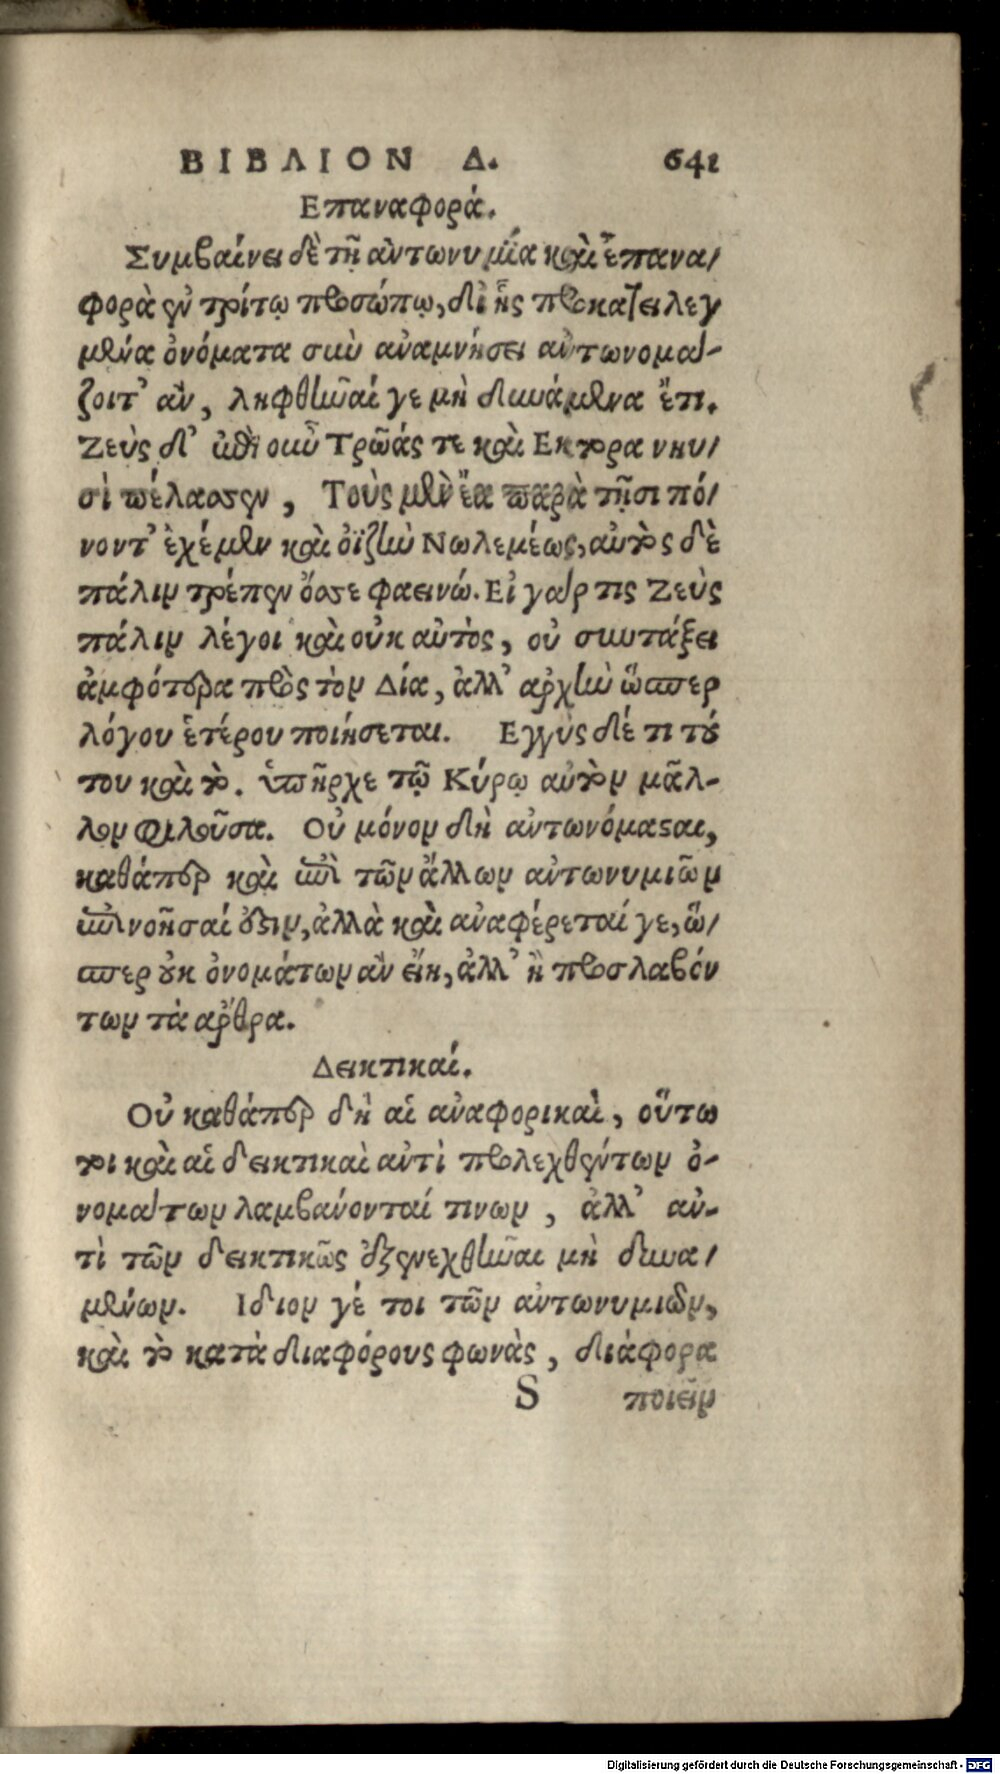 ΒΙΒΛΙΟΝ Δ. 641
Επαναφορά.
Συμβαίνει δὲ τῇ ἀντωνυμίᾳ καὶ ἐπανα/
φορὰ ἐν τρίτῳ προσώπῳ, δι᾽ ἧς προκατειλεγ
μένα ὀνόματα σὺν ἀναμνήσει ἀντωνομα-
ζοιτ᾽ ἂν, ληφθῆναί γε μὴ δυνάμενα ἔτι.
Ζεὺς δ᾽ ἐπεὶ οὖν Τρῶάς τε καὶ Εκτορα νηυ/
σὶ πέλασεν, Τοὺς μὲν ἔα παρὰ τῇσι πό/
νοντ᾽ ἐχέμεν καὶ ὀϊζὺν Νωλεμέως, αὐτὸς δὲ
πάλιν τρέπεν ὄσσε φαεινώ. Εἰ γάρ τις Ζεὺς
πάλιν λέγοι καὶ οὐκ αὐτὸς, οὐ συντάξει
ἀμφότερα πρὸς τὸν Δία, ἀλλ᾽ ἀρχὴν ὥσπερ
λόγου ἑτέρου ποιήσεται. Εγγύς δέ τι τού
του καὶ τὸ. ὑπῆρχε τῷ Κύρῳ αὐτὸν μᾶλ-
λον φιλοῦσα. Οὐ μόνον δὴ ἀντωνόμασαι,
καθάπερ καὶ ἐπὶ τῶν ἄλλων ἀντωνυμιῶν
ἐπινοῆσαί ἐστιν, ἀλλὰ καὶ ἀναφέρεταί γε, ὥ/
σπερ οὐκ ὀνομάτων ἂν εἴη, ἀλλ᾽ ἢ προσλαβόν
των τὰ ἄρθρα.
Δεικτικαί.
Οὐ καθάπερ δὴ αἱ ἀναφορικαὶ, οὕτω
τοι καὶ αἱ δεικτικαὶ ἀντὶ προλεχθέντων ὀ-
νομάτων λαμβάνονταί τινων, ἀλλ᾽ ἀν-
τὶ τῶν δεικτικῶς ἐξενεχθῆναι μὴ δυνα/
μένων. Ιδιον γέ τοι τῶν ἀντωνυμιῶν,
καὶ τὸ κατὰ διαφόρους φωνὰς, διάφορα
S ποιεῖν
Digitalisierung gefördert durch die Deutsche Forschungsgemeinschaft - DFG